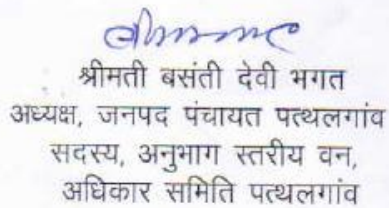 श्रीमती बसंती देवी भगत
अध्यक्ष, जनपद पंचायत पत्थलगांव
सदस्य, अनुभाग स्तरीय वन,
अधिकार समिति पत्थलगांव